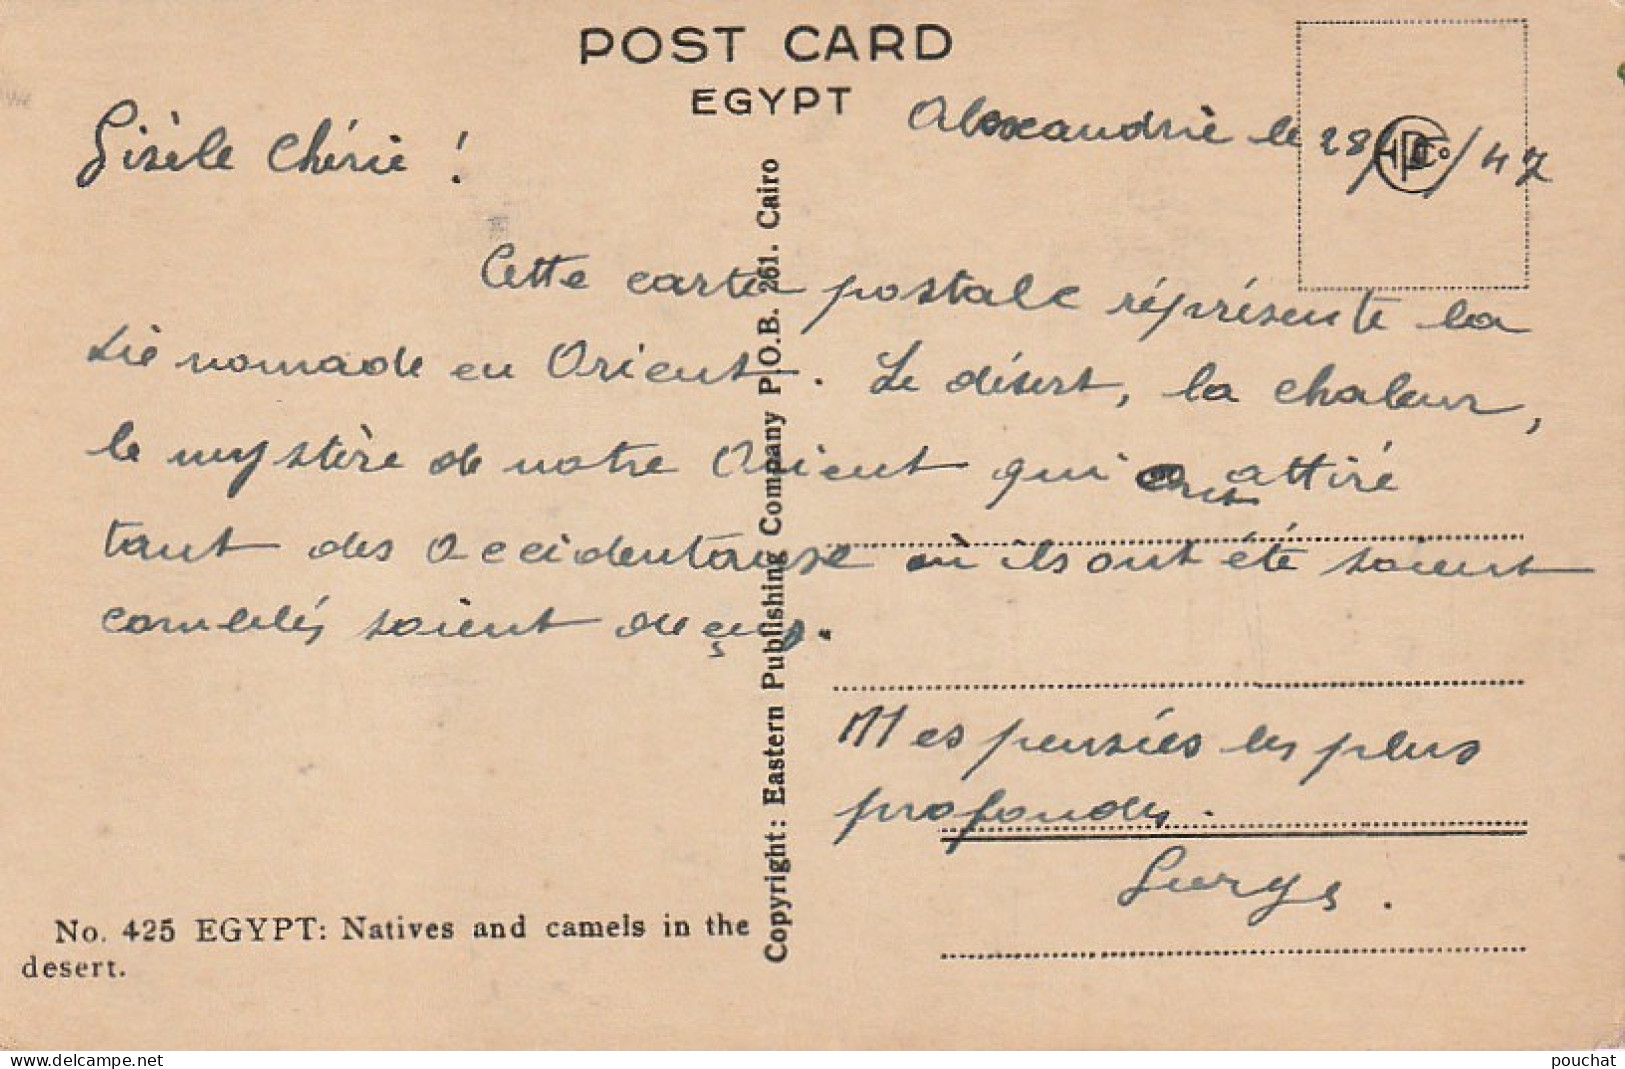 POST CARD
EGYPT
Alexandrie le 28/ /47
Gisèle Chérie !
Cette carte postale réprésente la
vie nomade en Orient. Le désert, la chaleur,
le mystère de notre Orient qui ont attiré
tant des Occidentaux où ils ont été soient
comblés soient deçus.
Mes pensées les plus
profondes.
Serge.
No. 425 EGYPT: Natives and camels in the
desert.
Copyright: Eastern Publishing Company P.O.B. 261. Cairo
delcampe.net
pouchat